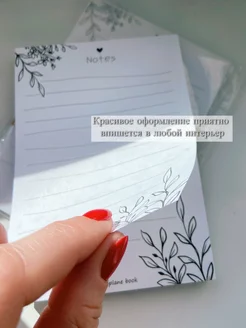 Notes
Красивое оформление приятно
впишется в любой интерьер
plane book